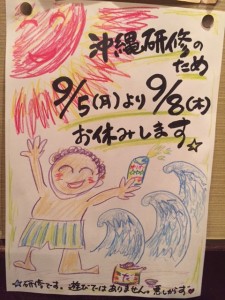 沖縄研修の
ため
9/5(月)より9/8(木)
お休みします☆
☆研修です。遊びではありません。悪しからず♥